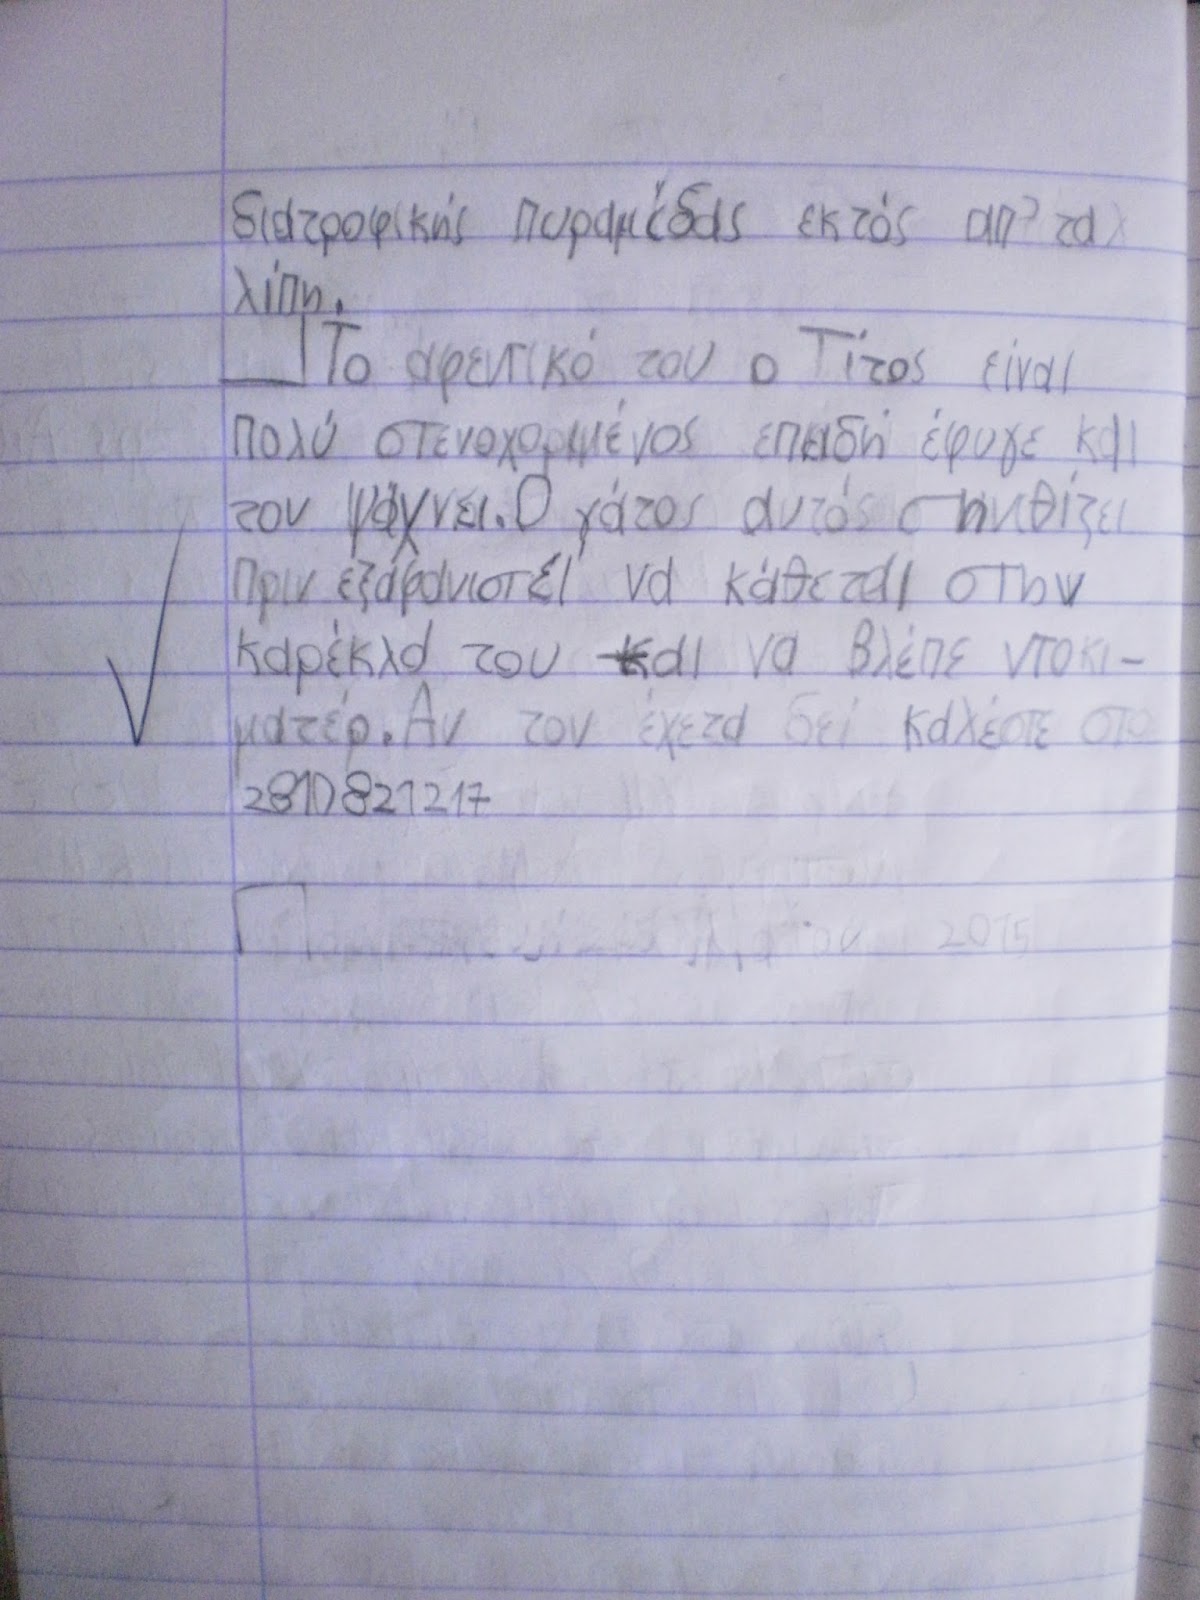 διατροφικής πυραμίδας εκτός απ' τα
λίπη.
Το αφεντικό του ο Τίτος είναι
πολύ στενοχοριμένος επειδή έφυγε και
τον ψάχνει. Ο γάτος αυτός συνηθίζει
πριν εξαφανιστεί να κάθεται στην
καρέκλα του και να βλέπε ντοκι-
ματέρ. Αν τον έχετα δεί καλέστε στο
2810821217
2015